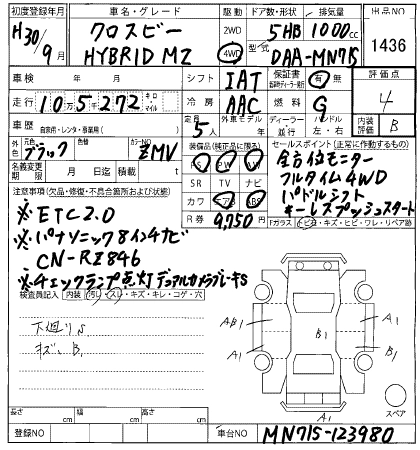 初度登録年月 車名・グレード 駆動 ドア数・形状 排気量 出品NO
H30/9月 クロスビー HYBRID MZ 2WD 4WD 5HB 1000cc 1436
型式 DAA-MN71S
車検 年 月 シフト IAT 保証書 有 無 評価点
走行 10万5千272 キロ・マイル 冷房 AAC 燃料 G 4
車歴 自家用・レンタ・事業用( ) 定員 5人 外車モデル 年 ディーラー 並行 ハンドル 左・右 内装 B
外色 元色 ブラック 色替 カラーNO ZMV 装備品(純正品に限る) セールスポイント(正常に作動するもの)
名義変更期限 月 日 積載 t PS PW
SR TV ナビ
カワ エアB ABS
R券 9,750円
全方位モニター
フルタイム4WD
パドルシフト
キーレスプッシュスタート
Fガラス トビ石・キズ・ヒビ・ワレ・リペア跡
注意事項(欠品・修復・不具合箇所および状態)
※ETC2.0
※パナソニック8インチナビ
CN-RE846
※チェックランプ点灯デュアルカメラブレーキS
検査員記入 内装 汚レ・スレ・キズ・キレ・コゲ・穴
下廻りS
キズ、B
AB1 A1 B1 A1 B1 A1
スペア
長さ cm 幅 cm 高さ cm
登録NO 車台NO MN71S-123980